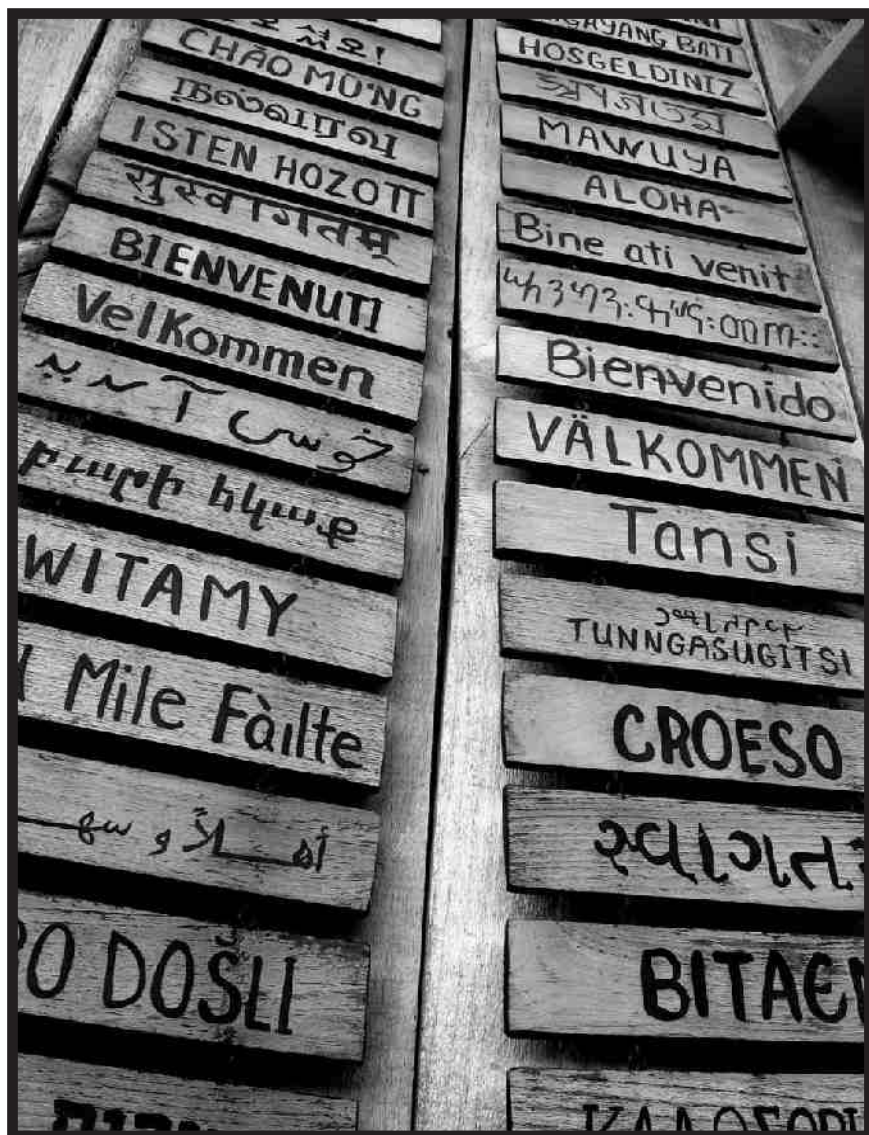 CHÃO MU'NG
நல்வரவு
ISTEN HOZOTT
सुस्वागतम्
BIENVENUTI
Velkommen
բարի եկաք
WITAMY
Mile Fàilte
أهــلاً و سهـــ
O DOŠLI
GAYANG BATI
HOSGELDINIZ
MAWUYA
ALOHA
Bine ati venit
Bienvenido
VÄLKOMMEN
Tansi
TUNNGASUGITSI
CROESO
સ્વાગત